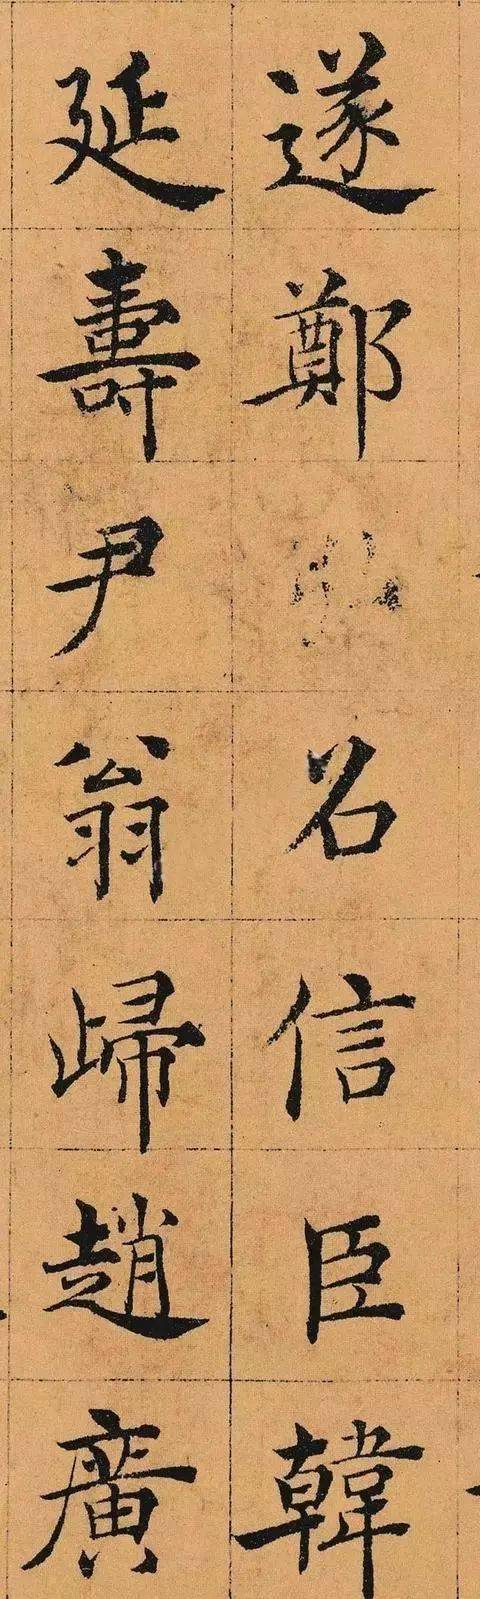 遂鄭召信臣韓
延壽尹翁歸趙廣